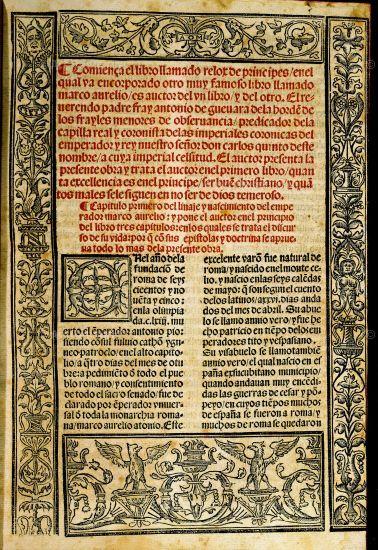 Comiença el libro llamado relox de principes/en el
qual va encorporado otro muy famoso libro llamado
marco aurelio/es auctor del vn libro/y del otro. El re-
uerendo padre fray antonio de gueuara de la bordē de
los frayles menores de obseruancia/predicador de la
capilla real y coronista de las imperiales coronicas del
emperador y rey nuestro señor don carlos quinto deste
nombre/a cuya imperial celsitud. El auctor presenta la
presente obra y trata el auctor en el primero libro/quan
ta excellencia es en el principe/ser buē christiano/y quā
tos males se le siguen en no ser de dios temeroso.
Capitulo primero del linaje y nascimiento del empe
rador marco aurelio: y pone el auctor en el principio
del libro tres capitulos: en los quales se trata el discur
so de su vida: por q̄ cō sus epistolas y doctrina se aprue
ua todo lo mas de la presente obra.
En el año de la
fundaciō de
roma de seys
cientos y no
uēta y cinco:
en la olimpia
da. clxiij. mu
erto el ēperador antonio pio:
siendo cōsul fuluio cathō y
patroclo/en el alto capito
lio/a q̄tro dias del mes de otu
bre: a pedimiēto d̄ todo el pue
blo romano/y consentimiento
de todo el sacro senado/fue de
clarado por ēperador vniuer-
sal d̄ toda la monarchia roma
na/marco aurelio atonio. Este
excelente varō fue natural de
roma/y nascido en el monte ce
lio/y nascio en las
de mayo
de los latinos/a xxvj. dias anda
dos del mes de abril. Su abue
lo se llamo annio vero/y fue he
cho patricio en tiēpo de los em
peradores tito y vespasiano.
Su visabuelo se llamo tambiē
annio vero/el qual nascio en
españa
quando andauan muy encēdi
das las guerras de cesar y pō
peyo/en cuyos tiēpos muchos
de españa se fueron a roma/y
muchos de roma se quedaron